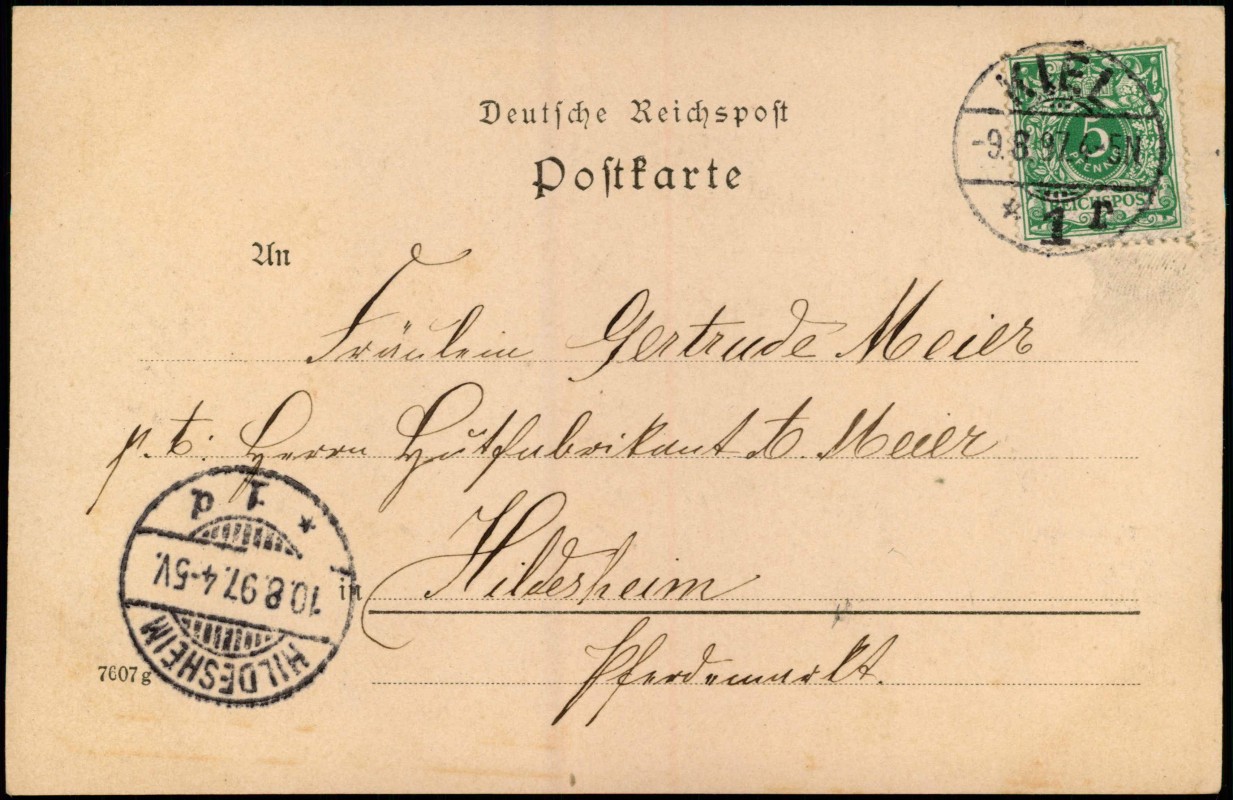 Deutsche Reichspost
Postkarte
KIEL
-9.8.97.4-5N
* 1 r
5
PFENNIG
REICHSPOST
An
Fräulein Gertrude Meier
p. t. Herrn Hutfabrikant Meier
in Hildesheim
Pferdemarkt.
HILDESHEIM
10.8.97.4-5V.
* 1 d
7607g